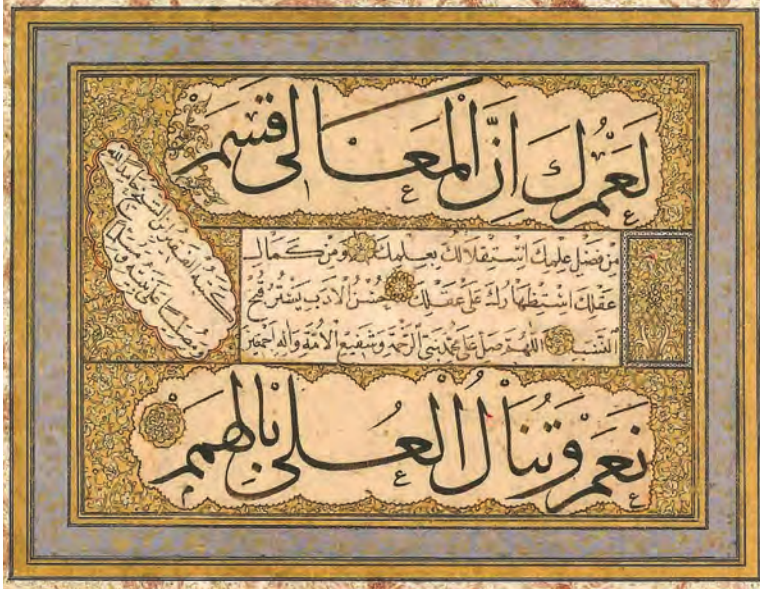 لَعَمْرُكَ اِنَّ الْمَعَالِى قِسَمٌ
مِنْ فَضْلِ عِلْمِكَ اسْتِقْلَالُكَ بِعِلْمِكَ وَمِنْ كَمَالِ
عَقْلِكَ اسْتِظْهَارُكَ عَلَى عَقْلِكَ حُسْنُ الْاَدَبِ يَسْتُرُ قُبْحَ
النَّسَبِ اَللّٰهُمَّ صَلِّ عَلَى مُحَمَّدٍ نَبِىِّ الرَّحْمَةِ وَشَفِيعِ الْاُمَّةِ وَآلِهِ اَجْمَعِينَ
نَعَمْ وَتُنَالُ الْعُلَى بِالْهِمَمِ
كتبه الفقير ابن الشيخ
ومصليا على نبيه